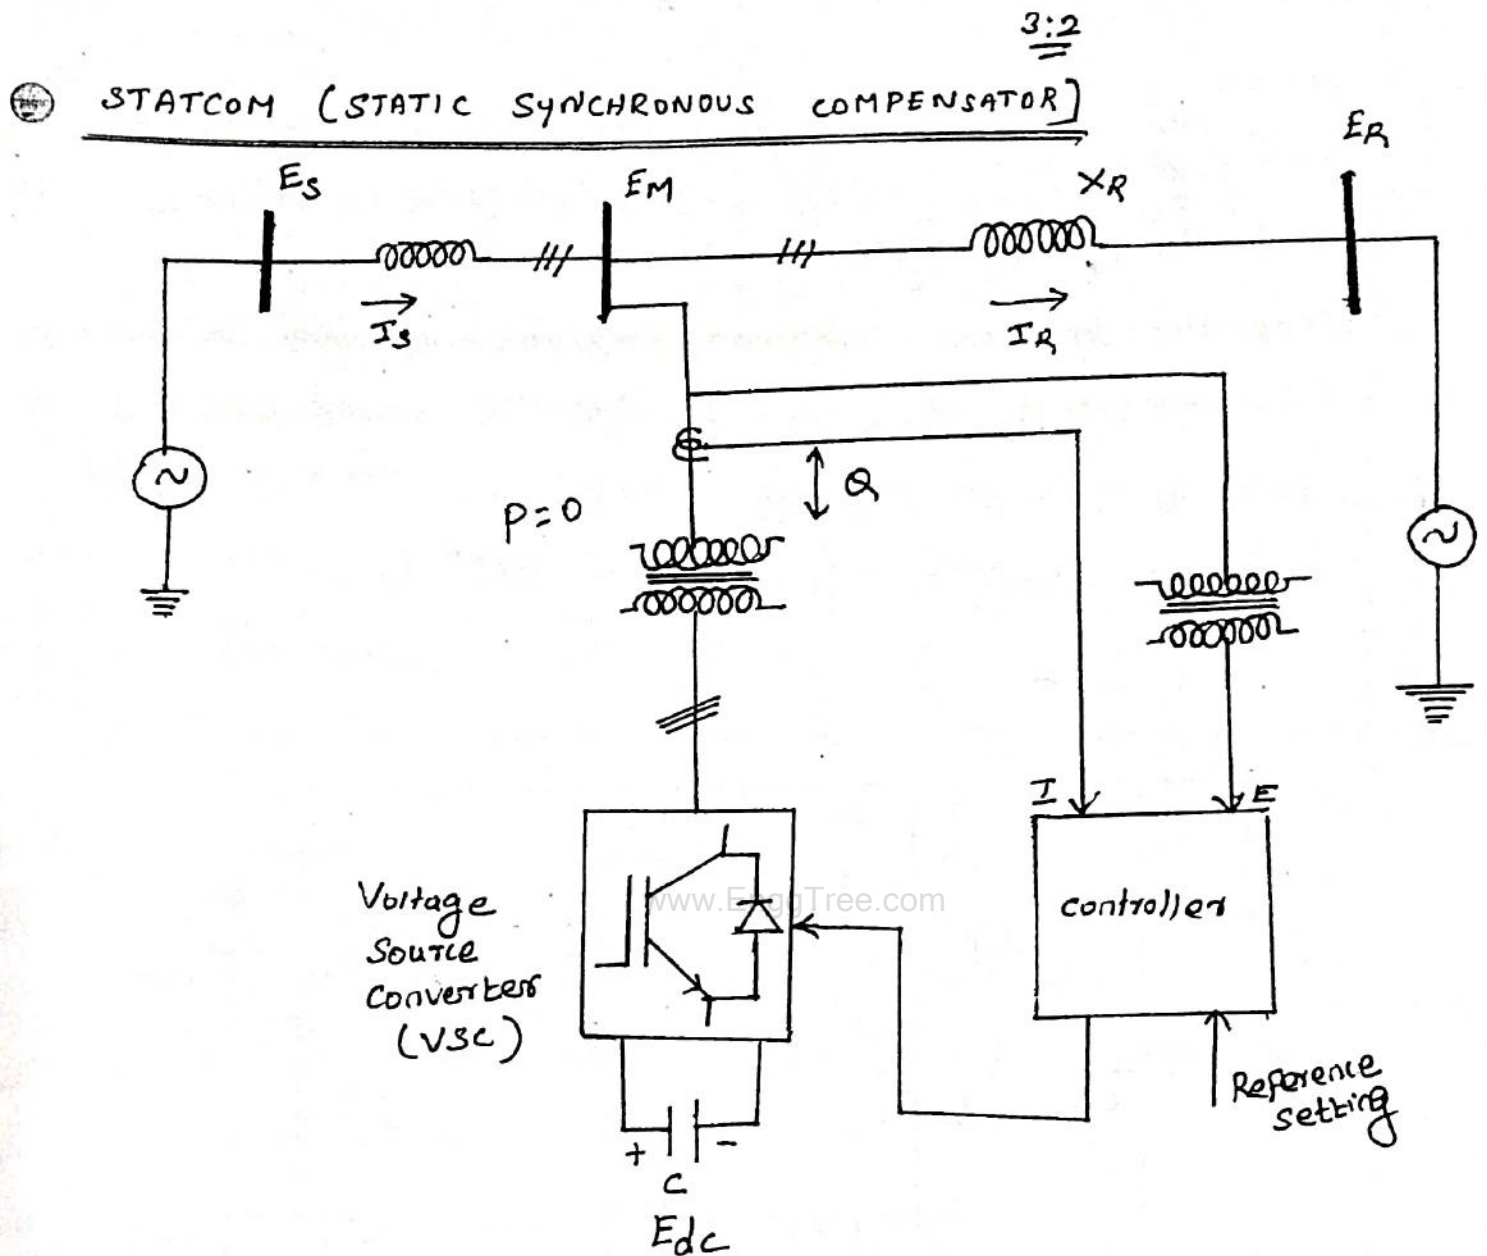 3:2
STATCOM (STATIC SYNCHRONOUS COMPENSATOR)
ES
EM
XR
ER
IS
IR
Q
P=0
I
E
Voltage
Source
Converter
(VSC)
www.EnggTree.com
controller
Reference
setting
+
-
C
Edc